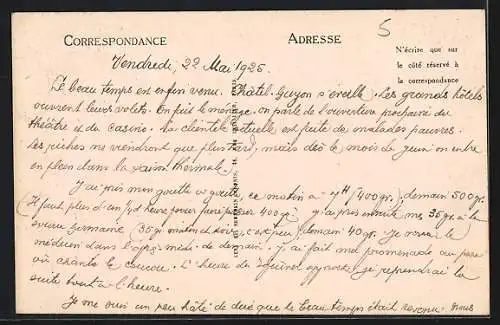 CORRESPONDANCE
ADRESSE
5
N'écrire que sur
le côté réservé à
la correspondance
Vendredi, 22 Mai 1925.
Le beau temps est enfin venu. Châtel-Guyon s'éveille. Les grands hôtels
ouvrent leurs volets. On fait le ménage, on parle de l'ouverture prochaine du
théâtre et du Casino. La clientèle actuelle est faite de malades pauvres.
Les riches ne viendront que plus tard, mais dès le mois de Juin on entre
en plein dans la saison thermale.
J'ai pris mon goutte à goutte, ce matin à 7H (400gr.), demain 500gr.
(Il faut plus d'un 1/2 d'heure pour faire passer 400gr.) J'ai pris ensuite me 35gr à la
source Germaine (35gr. matin et soir, c'est peu) demain 40gr. Je verrai le
médecin dans l'après-midi de demain. J'ai fait une promenade au parc
où chante le coucou. L'heure du approche, je reprendrai la
suite tout à l'heure.
Je me suis un peu hâté de dire que le beau temps était revenu. nous